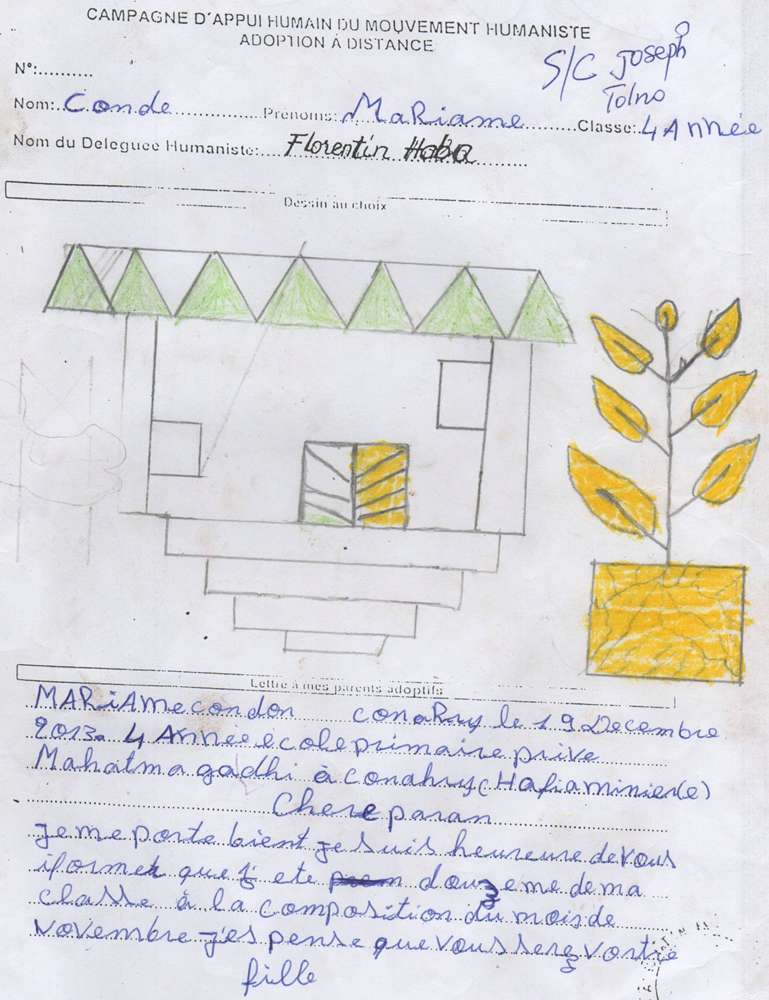 CAMPAGNE D'APPUI HUMAIN DU MOUVEMENT HUMANISTE
ADOPTION A DISTANCE
S/C Joseph
Tolno
N°:..........
Nom: Conde Prénoms: MaRiame Classe: 4 Année
Nom du Deleguée Humaniste: Florentin Haba
Dessin au choix
Lettre à mes parents adoptifs
MARiAme condon conaRry le 19 Decembre
2013. 4 Annee ecole primaire prive
Mahatma gadhi à conahry (Hafiaminier(e)
Chere paran
Je me porte bient je suis heureuse de vous
iformet que j ete douzeme de ma
classe à la composition du mois de
Novembre j'es pense que vous serz vortre
fille